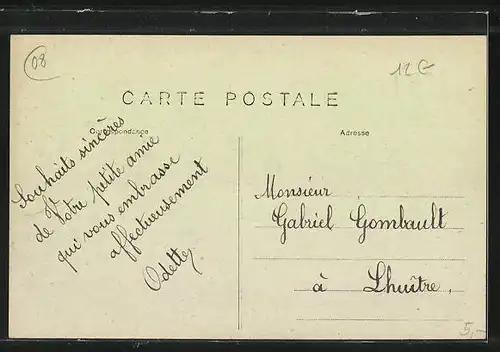 08
12€
CARTE POSTALE
Correspondance
Adresse
Souhaits sincères
de Votre petite amie
qui vous embrasse
affectueusement
Odette
Monsieur
Gabriel Gombault
à Lhuître.
5,-